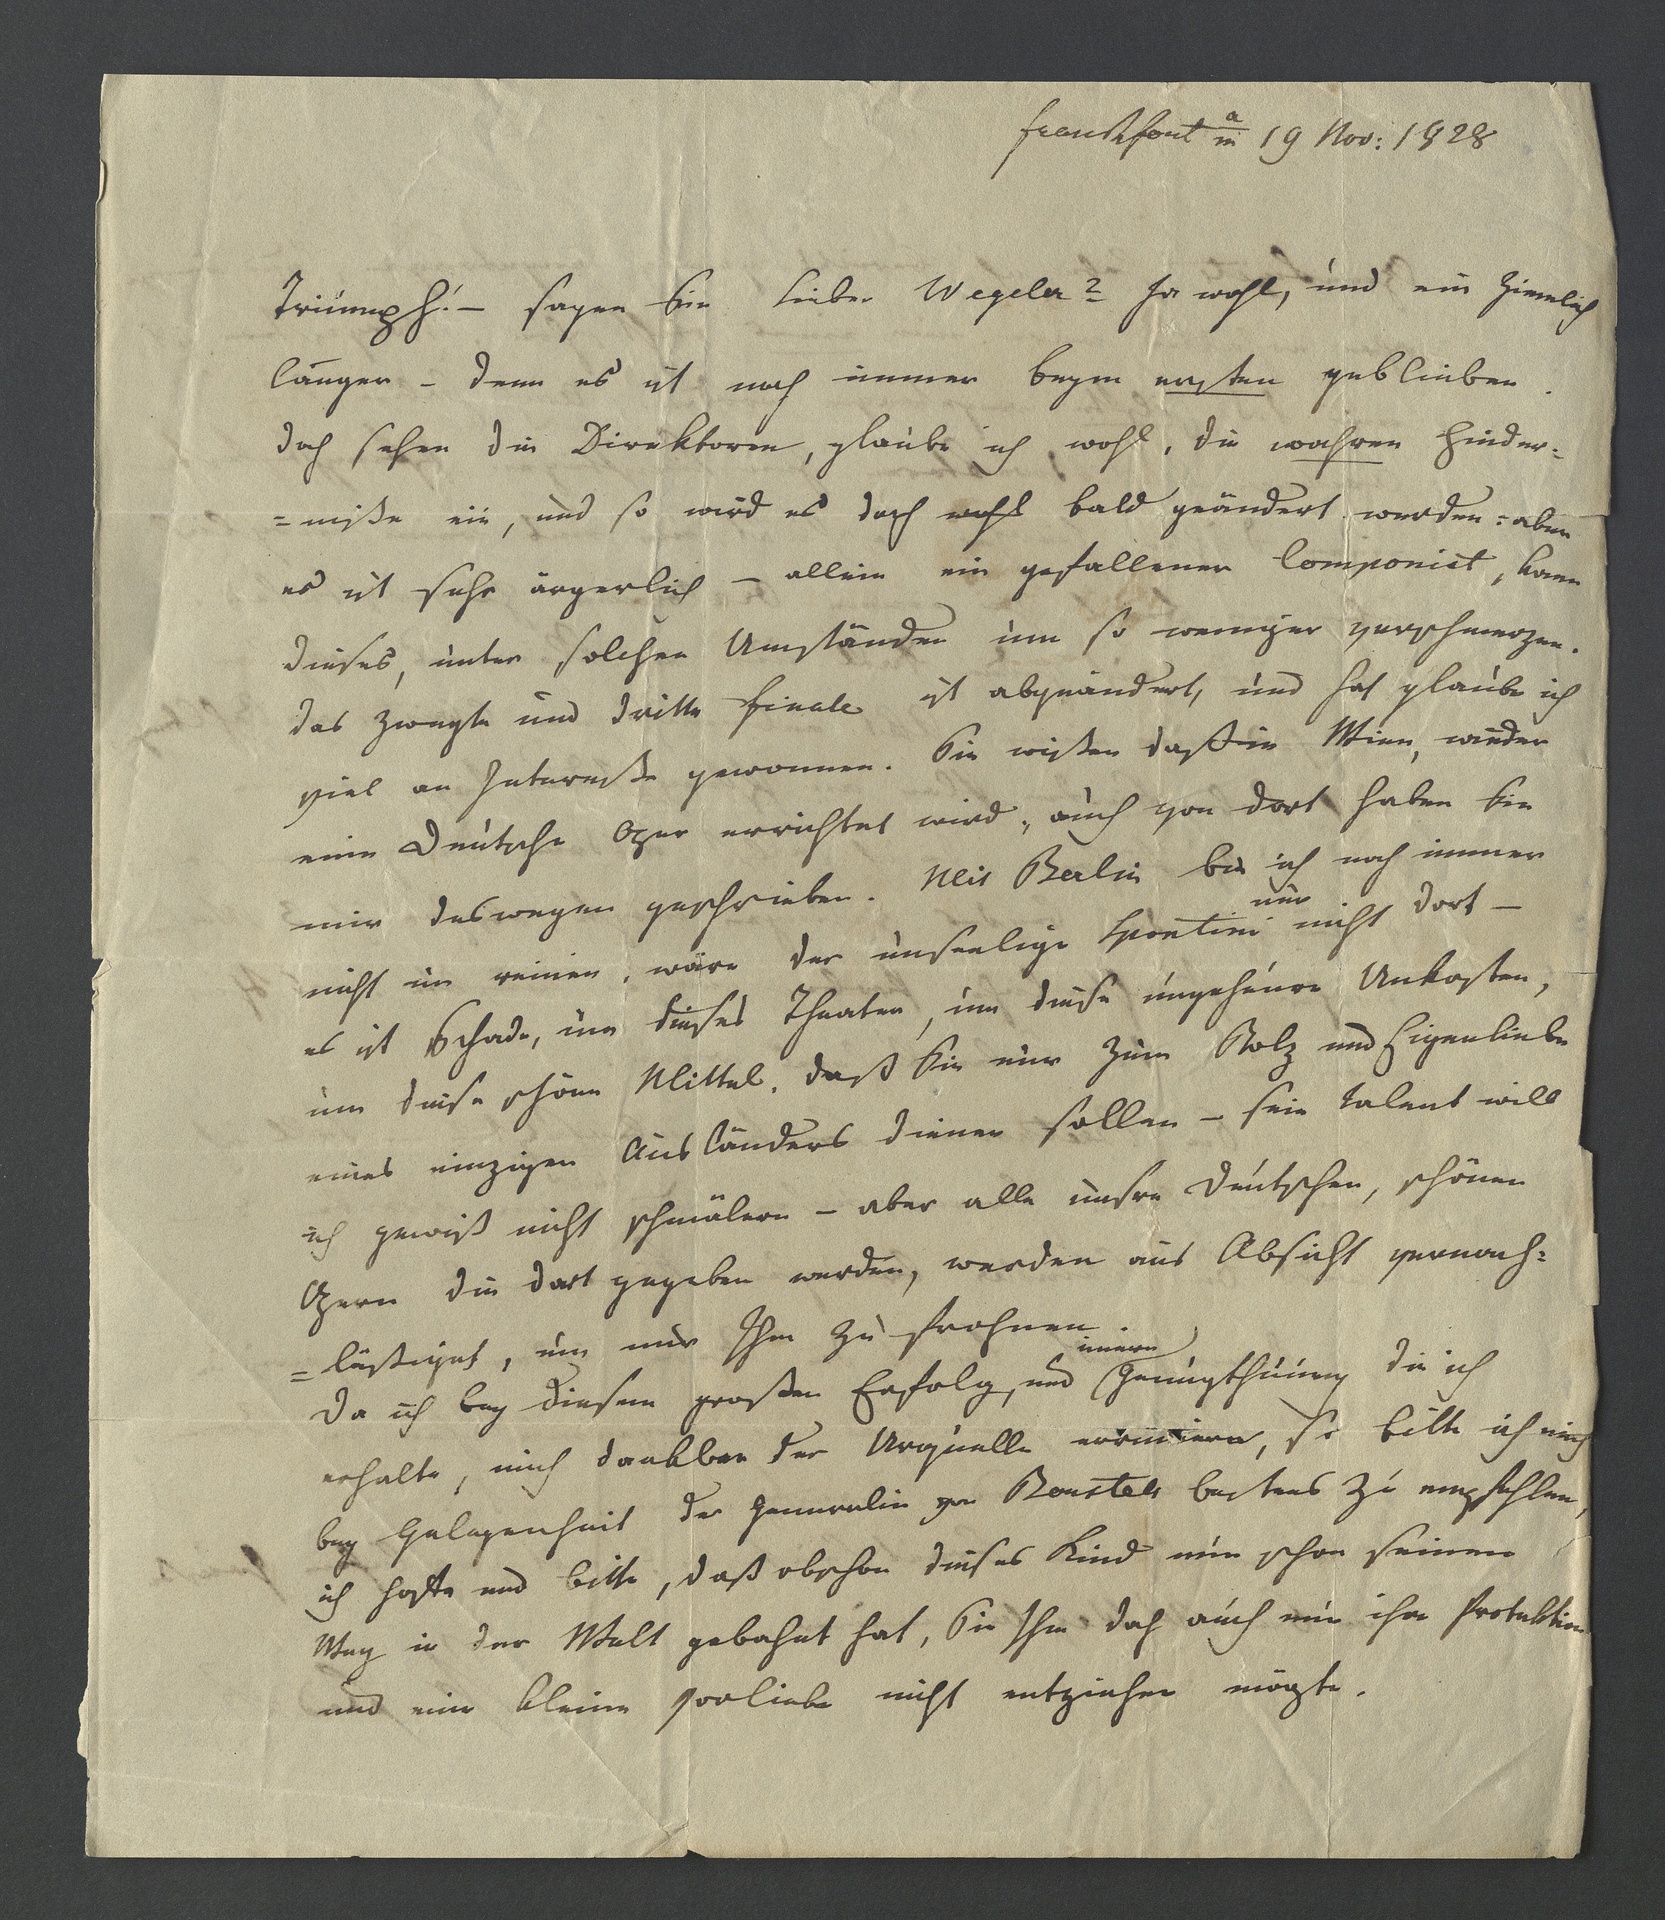 Frankfort a/m 19 Nov: 1828
Triumph! – sagen Sie lieber Wegeler? Ja wohl, und ein ziemlich
langer – denn es ist noch immer beym ersten geblieben.
doch sehen die Direktoren, glaube ich wohl, die wahren Hinder=
=niße ein, und so wird es doch wohl bald geändert werden: aber
es ist sehr ärgerlich – allein ein gefallener Componist, kann
dieses, unter solchen Umständen um so weniger verschmerzen.
das zweyte und dritte Finale ist abgeändert, und hat glaube ich
viel an Intereße gewonnen. Sie wißen daß in Wien, wieder
eine Deutsche Oper errichtet wird, auch von dort haben Sie
mir deswegen geschrieben. Mit Berlin bin ich noch immer
nicht im reinen, wäre der unseelige Spontini nur nicht dort –
es ist Schade, um dieses Theater, um diese ungeheure Unkosten,
um diese schöne Mittel, daß Sie nur zum Stolz und Eigenliebe
eines einzigen Ausländers dienen sollen – sein Talent will
ich gewiß nicht schmälern – aber alle unsre Deutschen, schönen
Opern die dort gegeben werden, werden aus Absicht vernach=
=läßiget, um nur Ihm zu frohnen.
Da ich bey diesem großen Erfolg, und innern Genugthuung die ich
erhalte, mich dankbar der Urquelle erinnere, so bitte ich mich
bey Gelegenheit der Generalin von Borstell bestens zu empfehlen,
ich hoffe und bitte, daß obschon dieses Kind nun schon seinen
Weg in der Welt gebahnt hat, Sie Ihm doch auch nun ihre Protektion
und eine kleine Vorliebe nicht entziehen mögte.